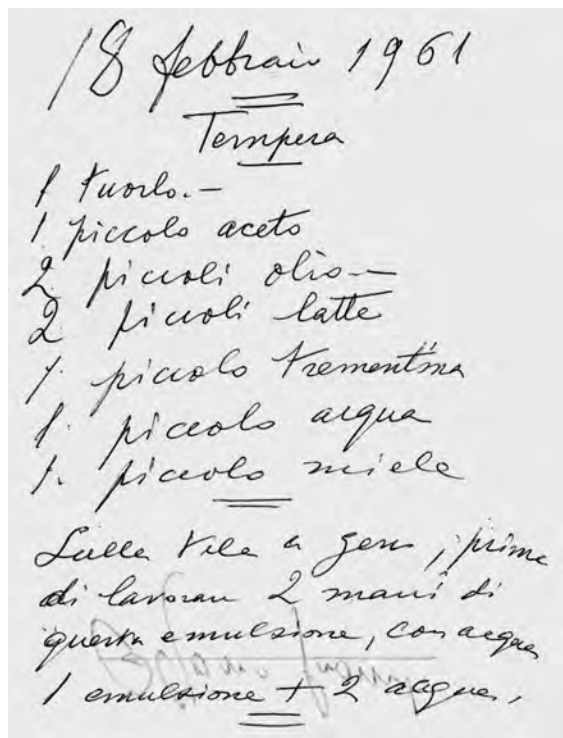 18 febbraio 1961
Tempera
1 tuorlo.—
1 piccolo aceto
2 piccoli olio—
2 piccoli latte
1. piccolo trementina
1. piccolo acqua
1. piccolo miele
Sulla tela a gesso, prima
di lavorare 2 mani di
questa emulsione, con acqua
1 emulsione + 2 acqua,